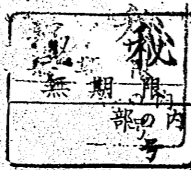 秘
無期限
部の内
号